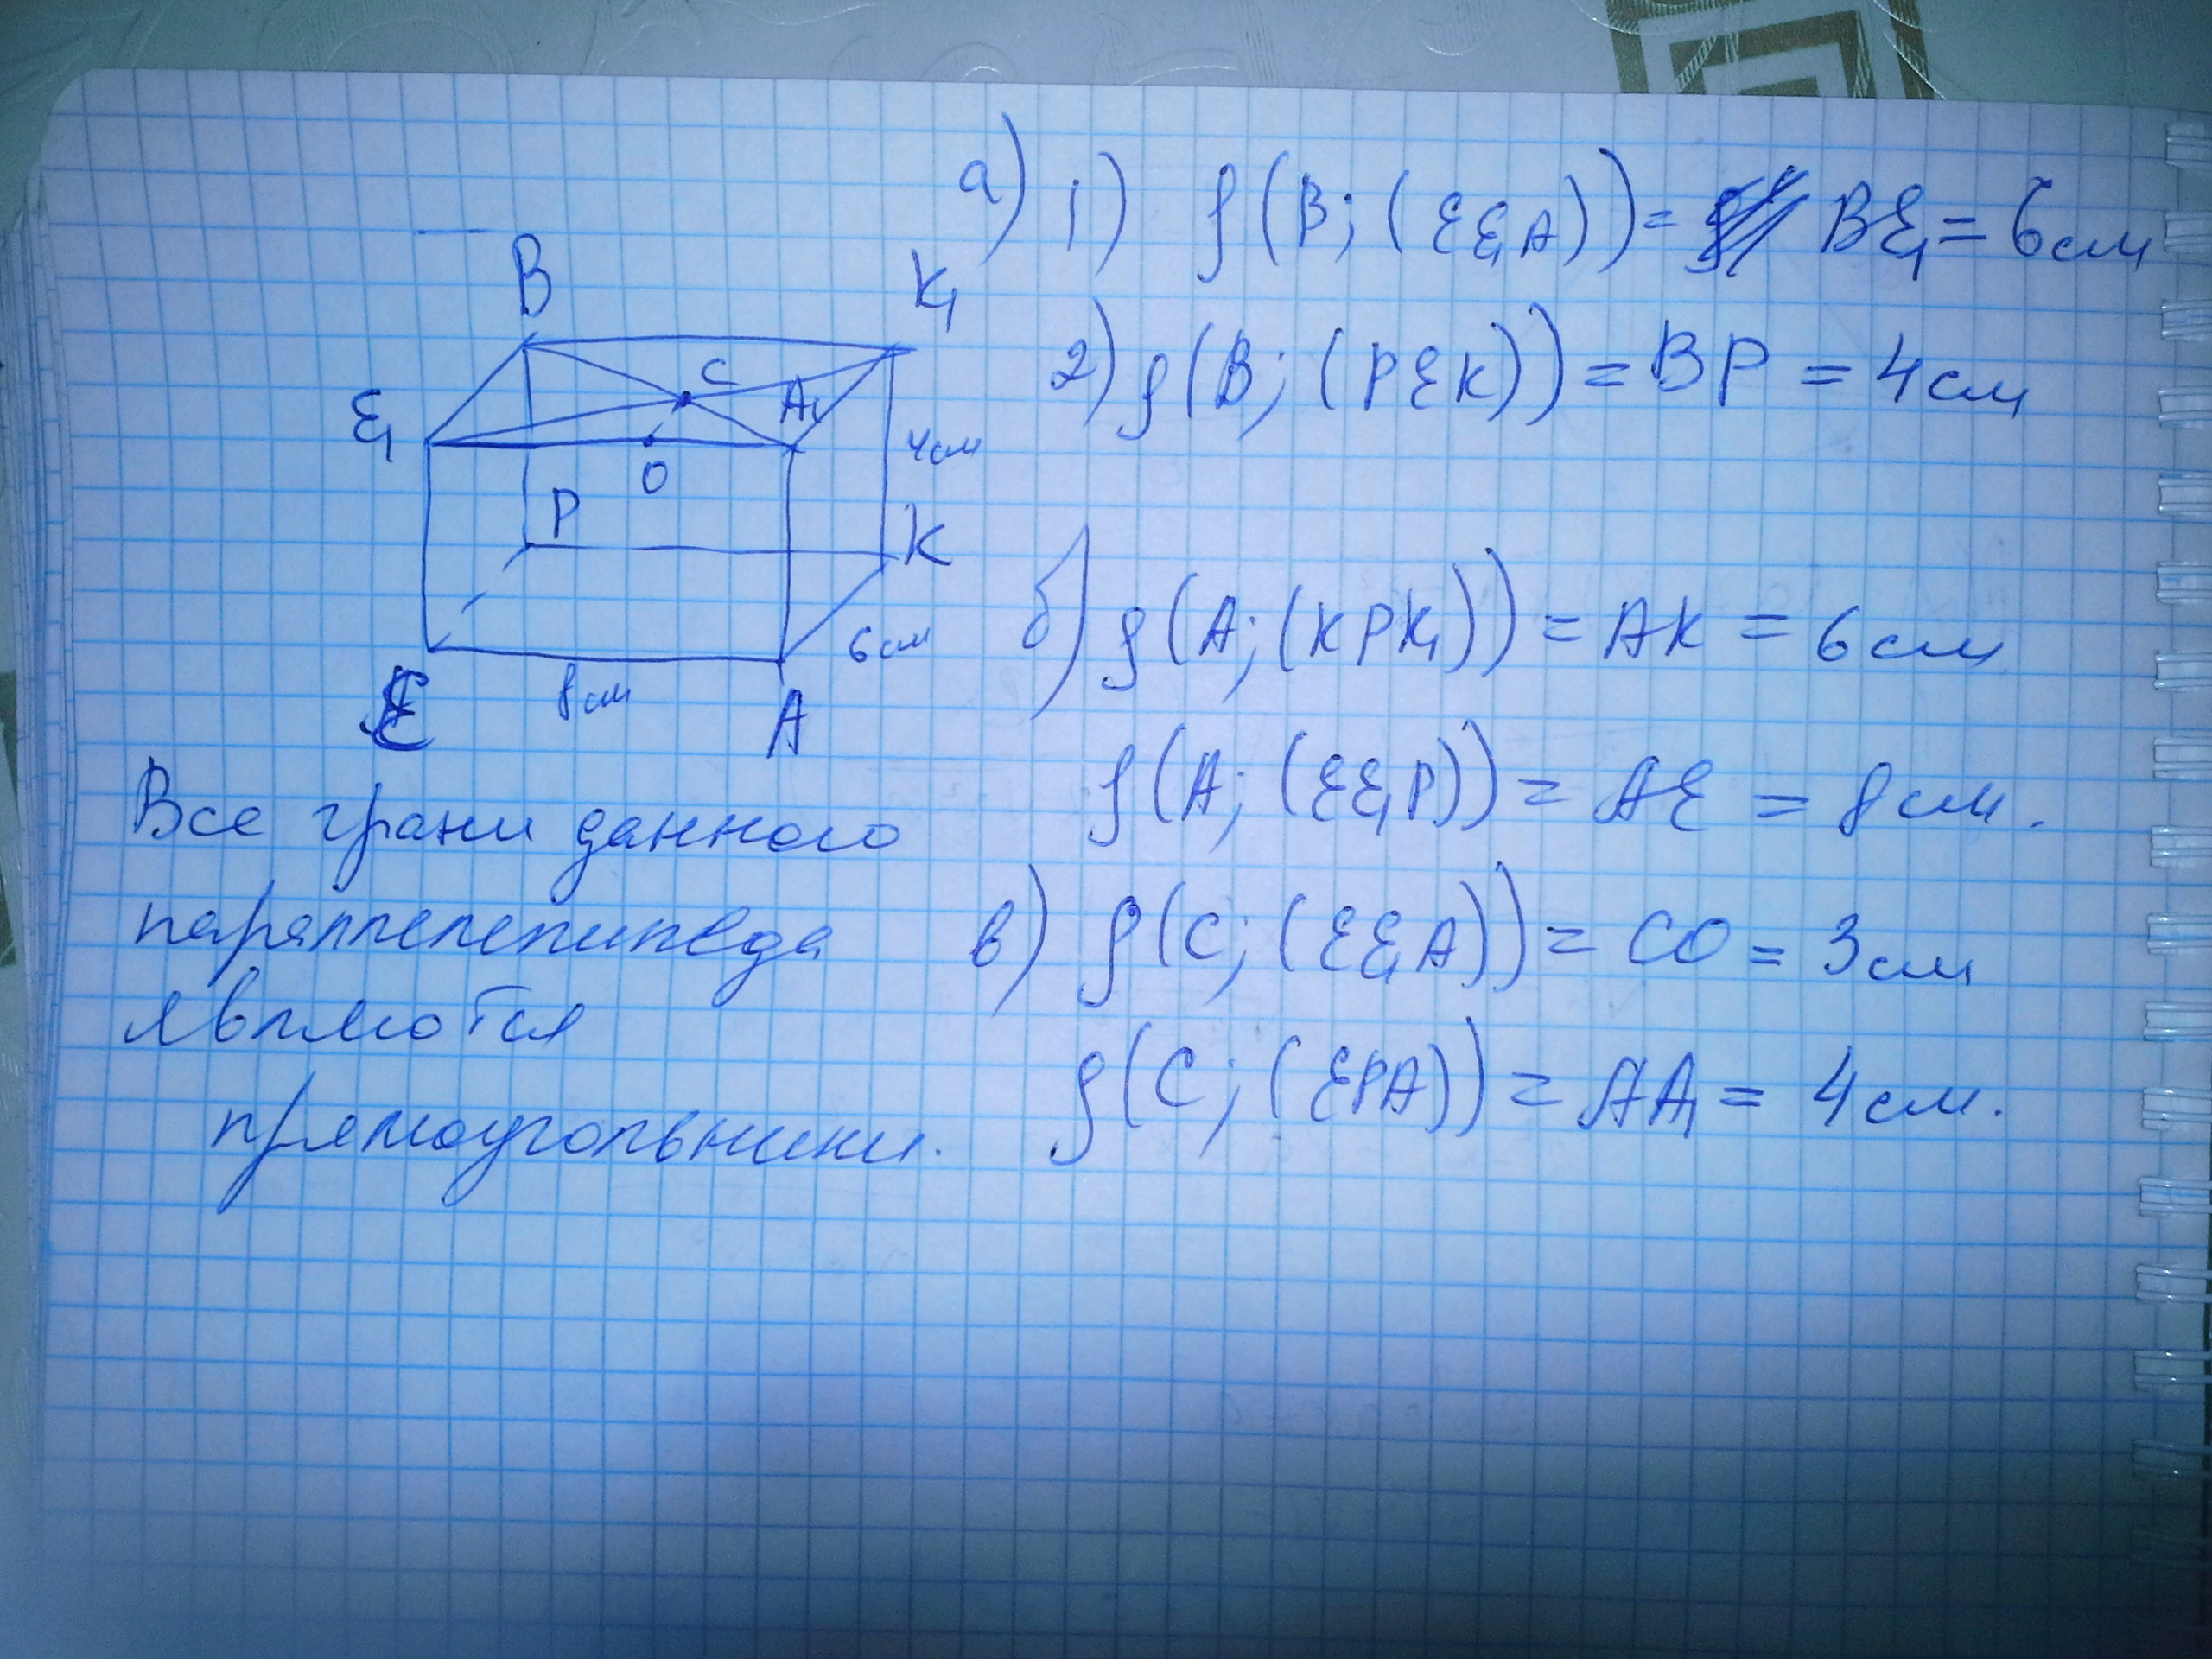 B
K₁
C
A₁
Ɛ₁
O
4см
P
K
6см
Ɛ
8см
A
Все грани данного
параллелепипеда
являются
прямоугольники.
а) 1) ρ(B; (ƐƐ₁A)) = BƐ₁ = 6см
2) ρ(B; (PƐK)) = BP = 4см
б) ρ(A; (KPK₁)) = AK = 6см
ρ(A; (ƐƐ₁P)) = AƐ = 8см.
в) ρ(C; (ƐƐ₁A)) = CO = 3см
ρ(C; (ƐPA)) = AA₁ = 4см.